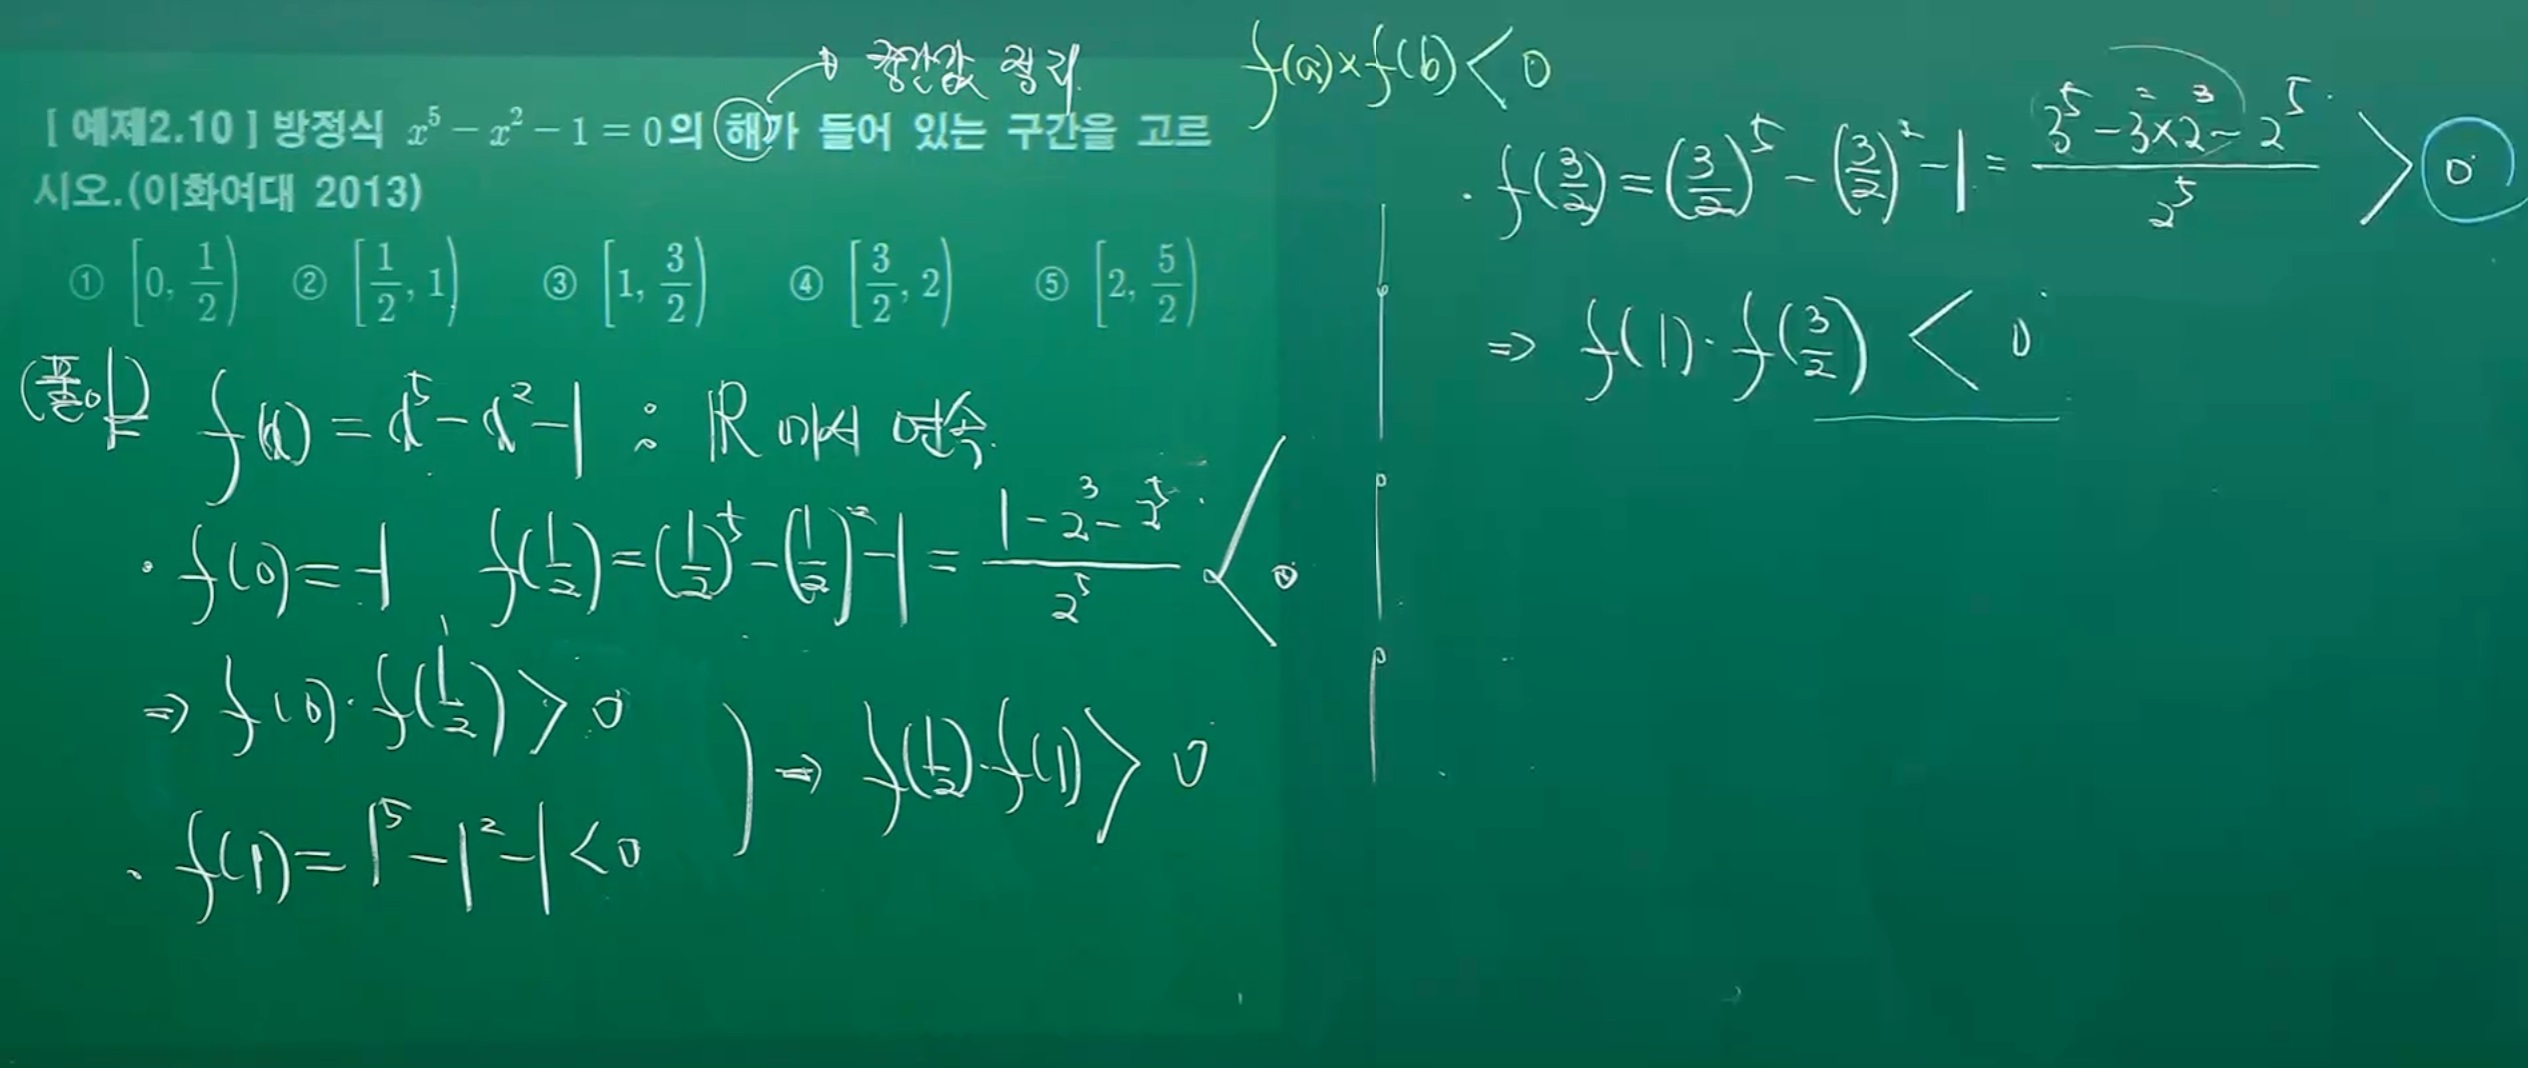 중간값 정리
[ 예제2.10 ] 방정식 x⁵ − x² − 1 = 0의 해가 들어 있는 구간을 고르
시오.(이화여대 2013)
① [0, 1/2) ② [1/2, 1) ③ [1, 3/2) ④ [3/2, 2) ⑤ [2, 5/2)
(풀이) f(x) = x⁵ − x² − 1 : ℝ에서 연속
· f(0) = −1 f(1/2) = (1/2)⁵ − (1/2)² − 1 = (1 − 2³ − 2⁵)/2⁵ < 0
⇒ f(0) · f(1/2) > 0
· f(1) = 1⁵ − 1² − 1 < 0
⇒ f(1/2) · f(1) > 0
f(a) × f(b) < 0
· f(3/2) = (3/2)⁵ − (3/2)² − 1 = (3⁵ − 3² × 2³ − 2⁵)/2⁵ > 0
⇒ f(1) · f(3/2) < 0